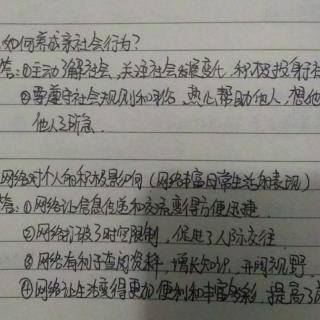 如何养成亲社会行为?
答:①主动了解社会,关注社会发展变化,积极投身
②要遵守社会规则和习俗,热心帮助他人,想他
他人之所急.
网络对个人的积极影响(网络丰富日常生活的表现)
答:①网络让信息传递和交流变得方便迅捷.
②网络打破了时空限制,促进了人际交往
③网络有利于查阅资料,增长知识,开阔视野.
④网络让生活变得更加便利和丰富多彩,提高了